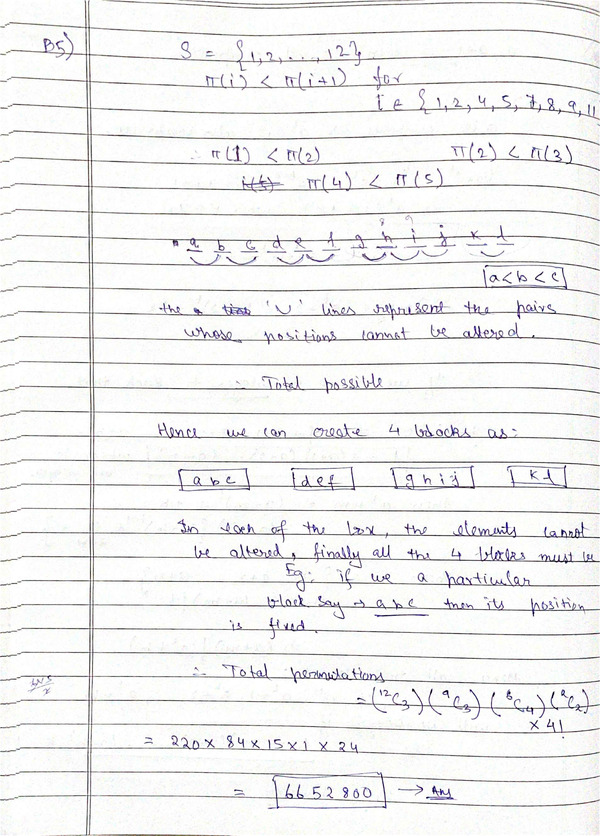 B5)
S = {1, 2, ..., 12}.
π(i) < π(i+1) for
i ∈ {1, 2, 4, 5, 7, 8, 9, 11
∴ π(1) < π(2) π(2) < π(3)
π(4) < π(5)
8 9
a b c d e f g h i j k l
[a<b<c]
the 'U' lines represent the pairs
whose positions cannot be altered.
∴ Total possible
Hence we can create 4 blocks as:
[abc] [def] [ghij] [kl]
In each of the box, the elements cannot
be altered, finally all the 4 blocks must be
Eg: if we a particular
block say → abc then its position
is fixed.
∴ Total permutations
= (¹²C₃) (⁹C₃) (⁶C₄) (²C₂)
× 4!
= 220 × 84 × 15 × 1 × 24
= [6652800] → Ans